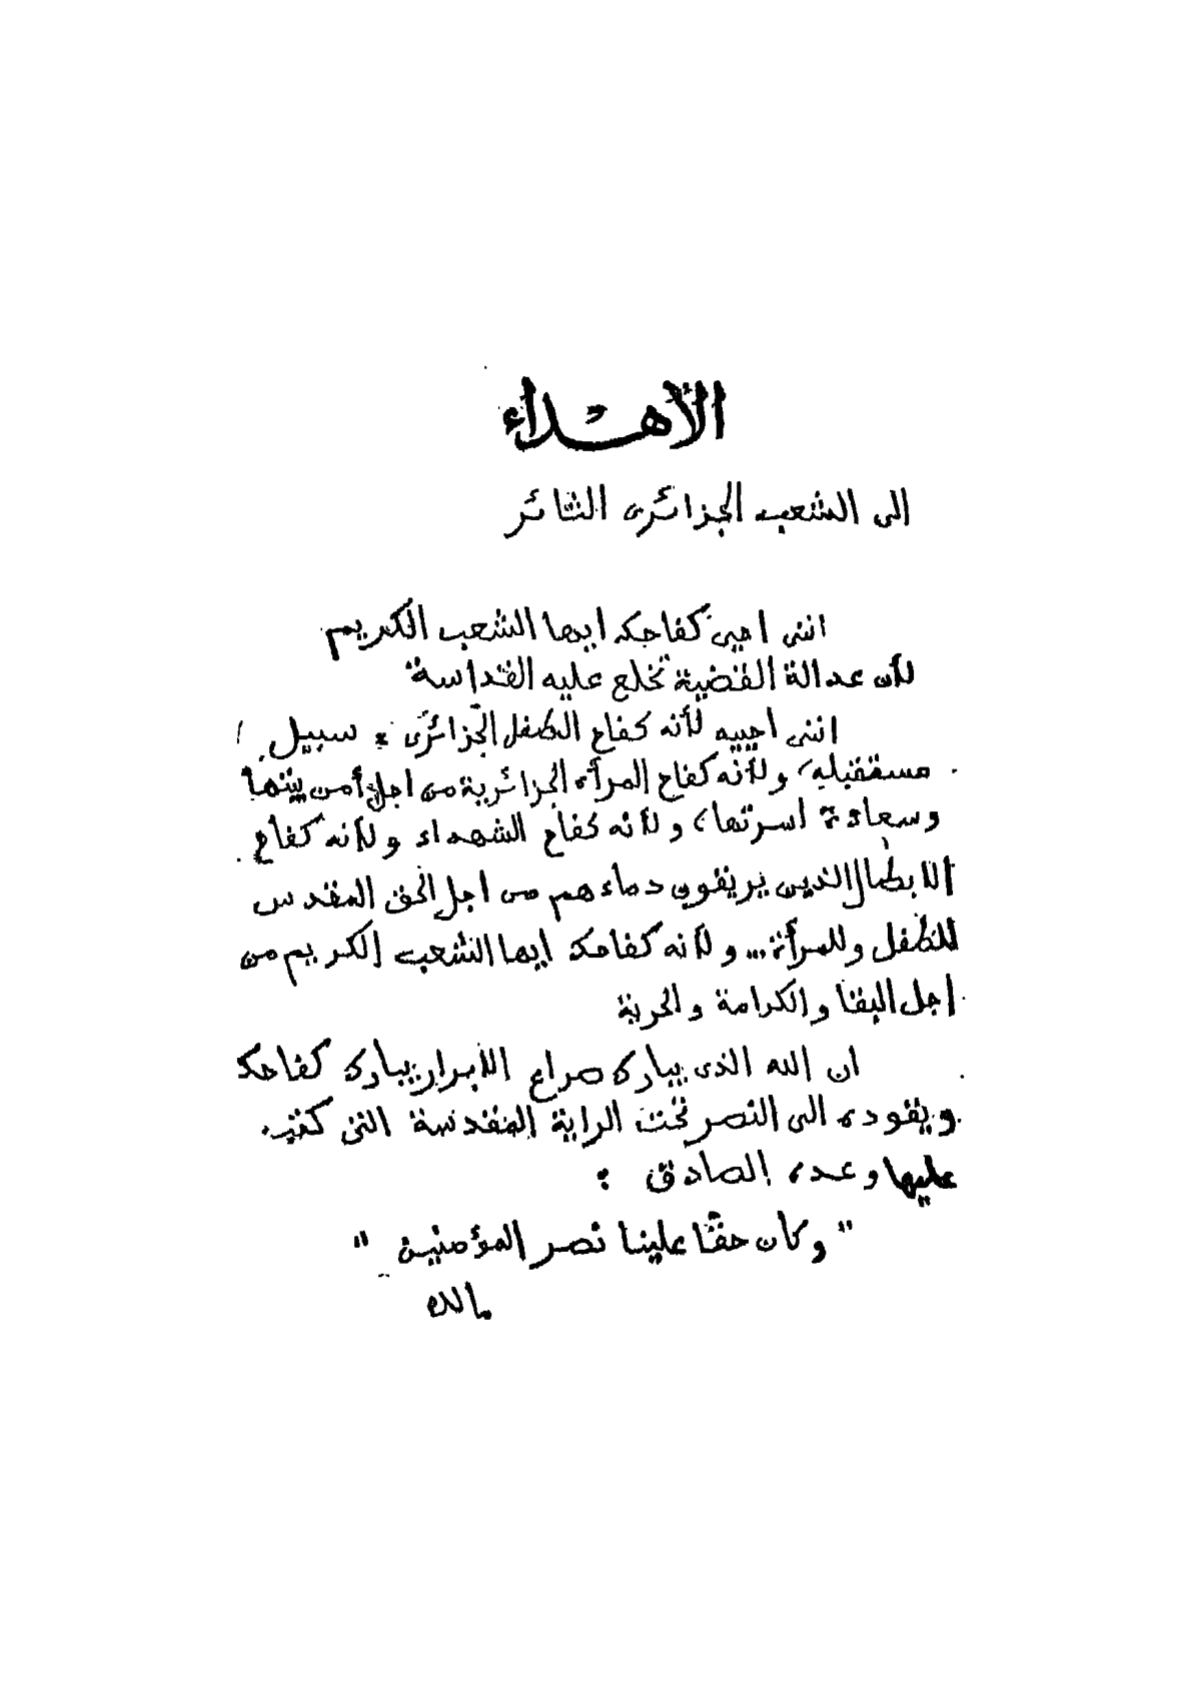 الأهداء
الى الشعب الجزائرى الثائر
اننى احيى كفاحك ايها الشعب الكريم
لأن عدالة القضية تخلع عليه القداسة
اننى احييه لأنه كفاح الطفل الجزائرى فى سبيل
مستقبله، ولأنه كفاح المرأة الجزائرية من اجل أمن بيتها
وسعادة اسرتها، ولأنه كفاح الشهداء ولأنه كفاح
الابطال الذين يريقون دماءهم من اجل الحق المقدس
للطفل وللمرأة... ولأنه كفاحك ايها الشعب الكريم من
اجل البقا والكرامة والحرية
ان الله الذى يبارك صراع الأبرار يبارك كفاحك
ويقوده الى النصر تحت الراية المقدسة التى كتب
عليها وعده الصادق :
" وكان حقّا علينا نصر المؤمنين "
مالك